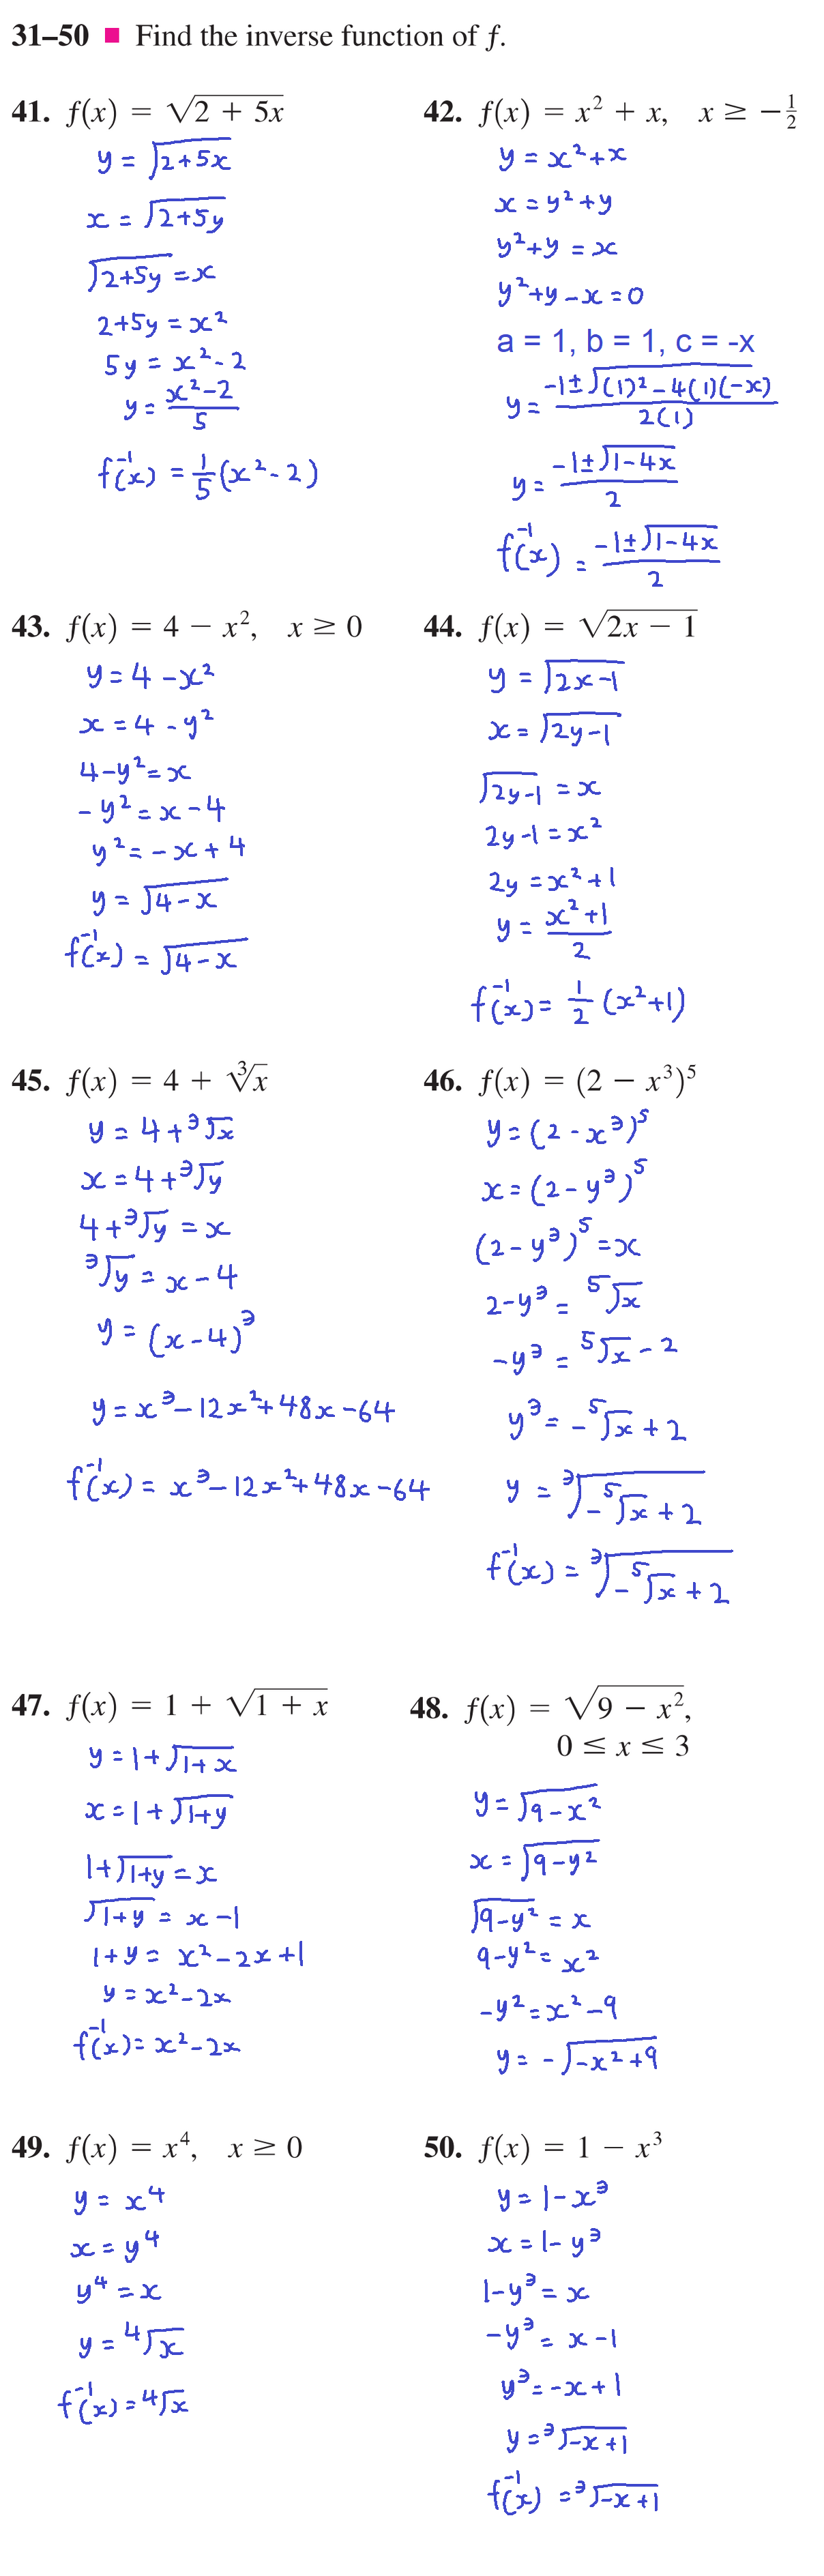 31–50 ■ Find the inverse function of f.
41. f(x) = √(2 + 5x)
y = √(2+5x)
x = √(2+5y)
√(2+5y) = x
2+5y = x²
5y = x²-2
y = (x²-2)/5
f⁻¹(x) = 1/5(x²-2)
42. f(x) = x² + x, x ≥ -1/2
y = x²+x
x = y²+y
y²+y = x
y²+y-x=0
a = 1, b = 1, c = -x
y = (-1±√((1)²-4(1)(-x)))/(2(1))
y = (-1±√(1-4x))/2
f⁻¹(x) = (-1±√(1-4x))/2
43. f(x) = 4 − x², x ≥ 0
y = 4-x²
x = 4-y²
4-y²=x
-y²=x-4
y²=-x+4
y = √(4-x)
f⁻¹(x) = √(4-x)
44. f(x) = √(2x − 1)
y = √(2x-1)
x = √(2y-1)
√(2y-1) = x
2y-1=x²
2y=x²+1
y = (x²+1)/2
f⁻¹(x) = 1/2 (x²+1)
45. f(x) = 4 + ∛x
y = 4+∛x
x = 4+∛y
4+∛y = x
∛y = x-4
y = (x-4)³
y = x³-12x²+48x-64
f⁻¹(x) = x³-12x²+48x-64
46. f(x) = (2 − x³)⁵
y = (2-x³)⁵
x = (2-y³)⁵
(2-y³)⁵=x
2-y³ = ⁵√x
-y³ = ⁵√x-2
y³ = -⁵√x+2
y = ³√(-⁵√x+2)
f⁻¹(x) = ³√(-⁵√x+2)
47. f(x) = 1 + √(1 + x)
y = 1+√(1+x)
x = 1+√(1+y)
1+√(1+y) = x
√(1+y) = x-1
1+y = x²-2x+1
y = x²-2x
f⁻¹(x) = x²-2x
48. f(x) = √(9 − x²),
0 ≤ x ≤ 3
y = √(9-x²)
x = √(9-y²)
√(9-y²) = x
9-y² = x²
-y²=x²-9
y = -√(-x²+9)
49. f(x) = x⁴, x ≥ 0
y = x⁴
x = y⁴
y⁴ = x
y = ⁴√x
f⁻¹(x) = ⁴√x
50. f(x) = 1 − x³
y = 1-x³
x = 1-y³
1-y³ = x
-y³ = x-1
y³ = -x+1
y = ³√(-x+1)
f⁻¹(x) = ³√(-x+1)